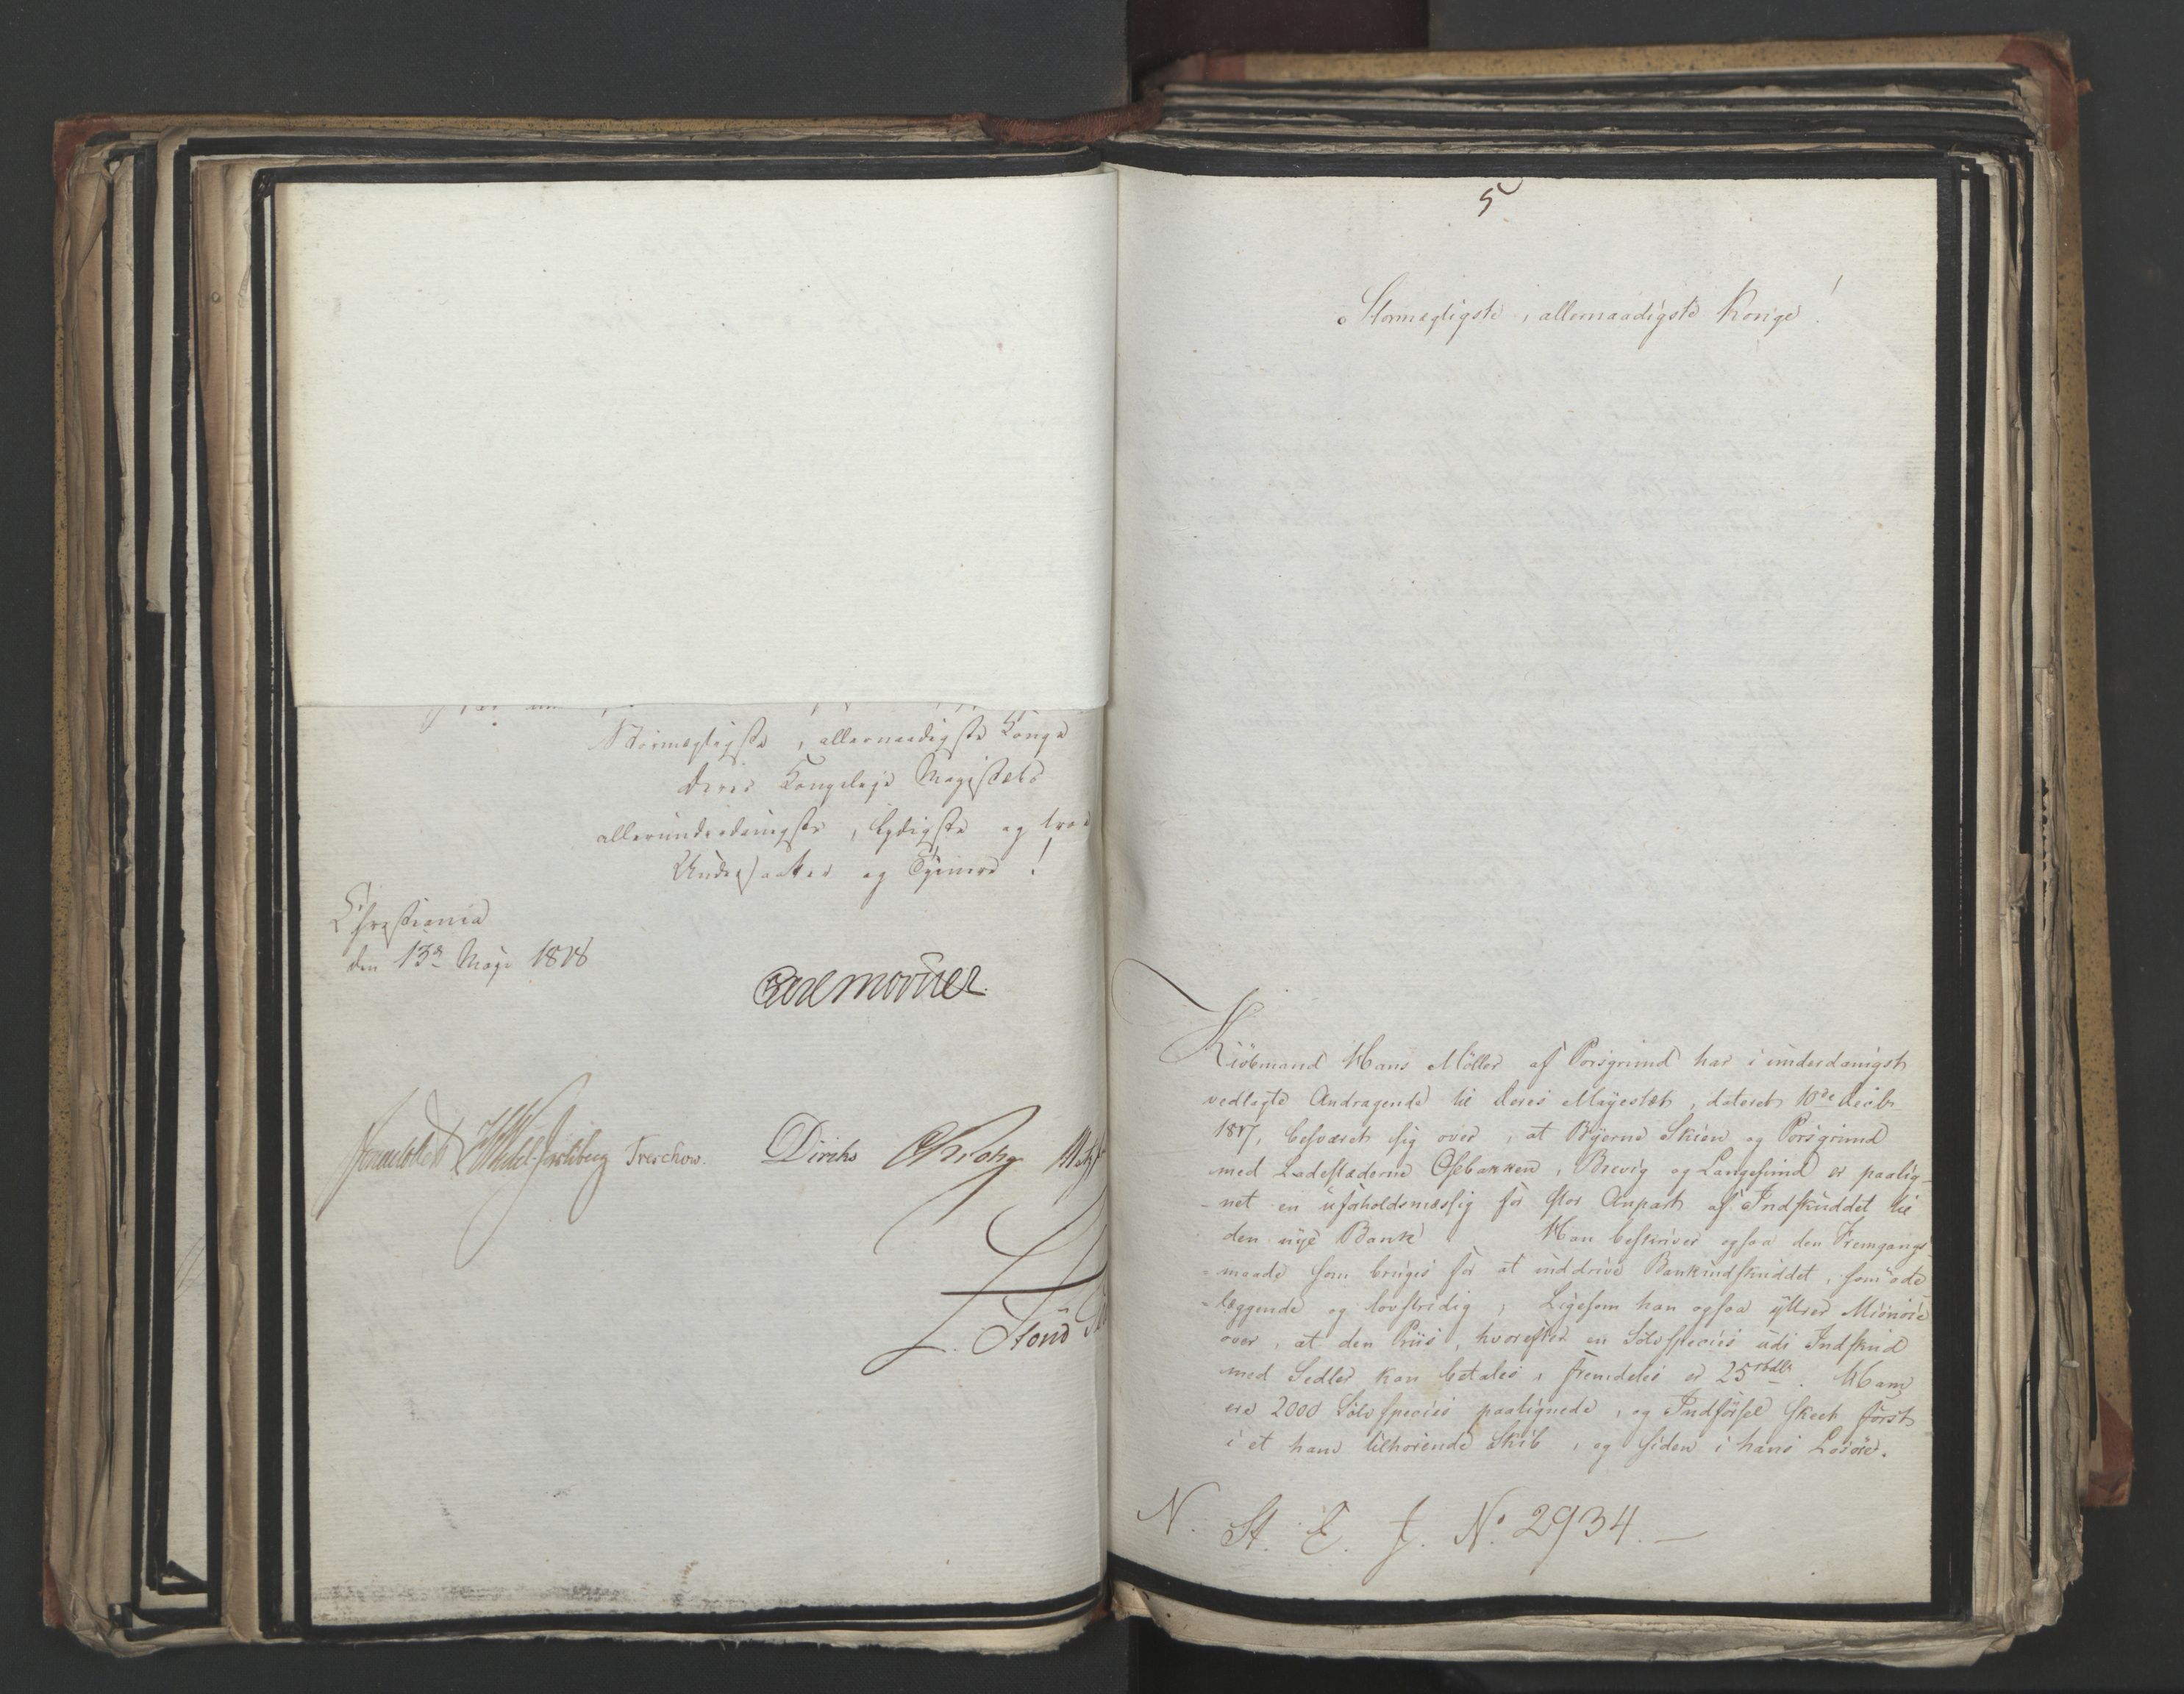 Stormægtigste, allernaadigste Konge
Deres Kongelige Majestæts
allerunderdanigste, lydigste og troe
Undersaatter og Tjenere!
Christiania
den 13de Maji 1818
Carl Mörner.
Sommerhielm HWedel Jarlsberg Treschow. Diriks CKrohg Motzf
L. Stoud
5
Stormægtigste, allernaadigste Konge!
Kiöbmand Hans Möller af Porsgrund har i underdanigst
vedlagte Andragende til Deres Majestæt, dateret 10de Decbr
1817, besværet sig over, at Byerne Skien og Porsgrund
med Ladestæderne Osebakken, Brevig og Langesund er paalig-
-net en uforholdsmæssig for stor Anpart af Indskuddet til
den nye Bank. Han beskriver ogsaa den Fremgangs-
-maade som bruges for at inddrive Bankindskuddet, som öde-
-læggende og lovstridig, Ligesom han ogsaa yttrer Misnöie
over, at den Priis, hvorefter en Sölvspecies udi Indskud
med Sedler kan betales, fremdeles er 25 rbdlr. Ham
ere 2000 Sölvspecies paalignede, og Indförsel skeet först
i et ham tilhörende Skib, og siden i hans Lösöre.
N. St. E. J. No. 2934.